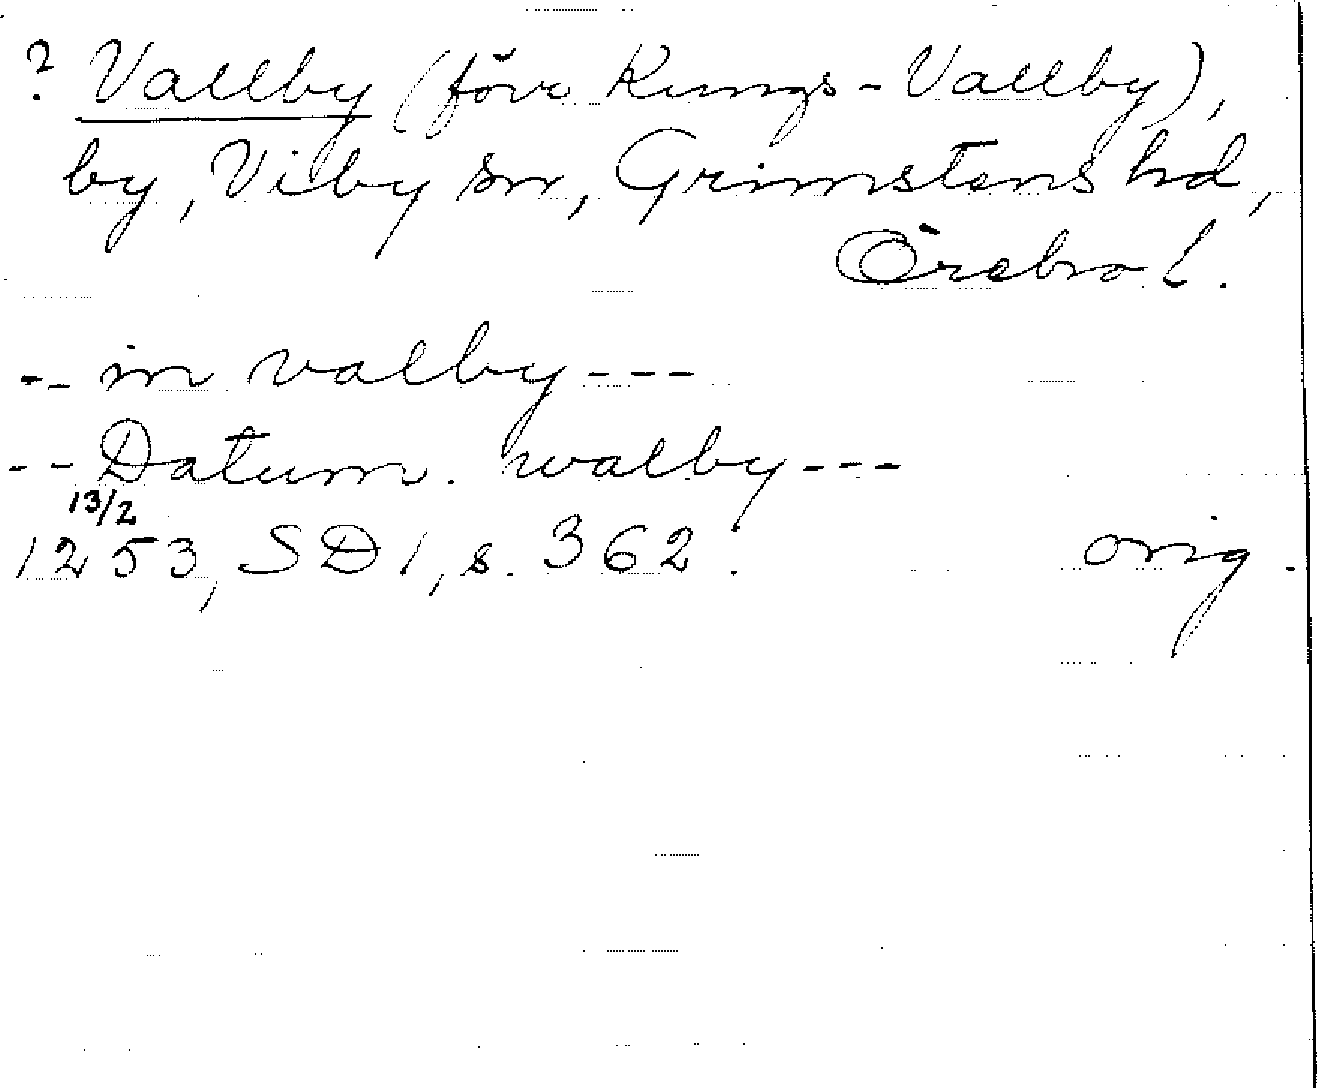 ? Vallby (förr Kungs-Vallby),
by, Viby sn, Grimstens hd,
Örebro l.
-- in valby ---
-- Datum. walby ---
13/2
1253, SD 1, s. 362. orig.